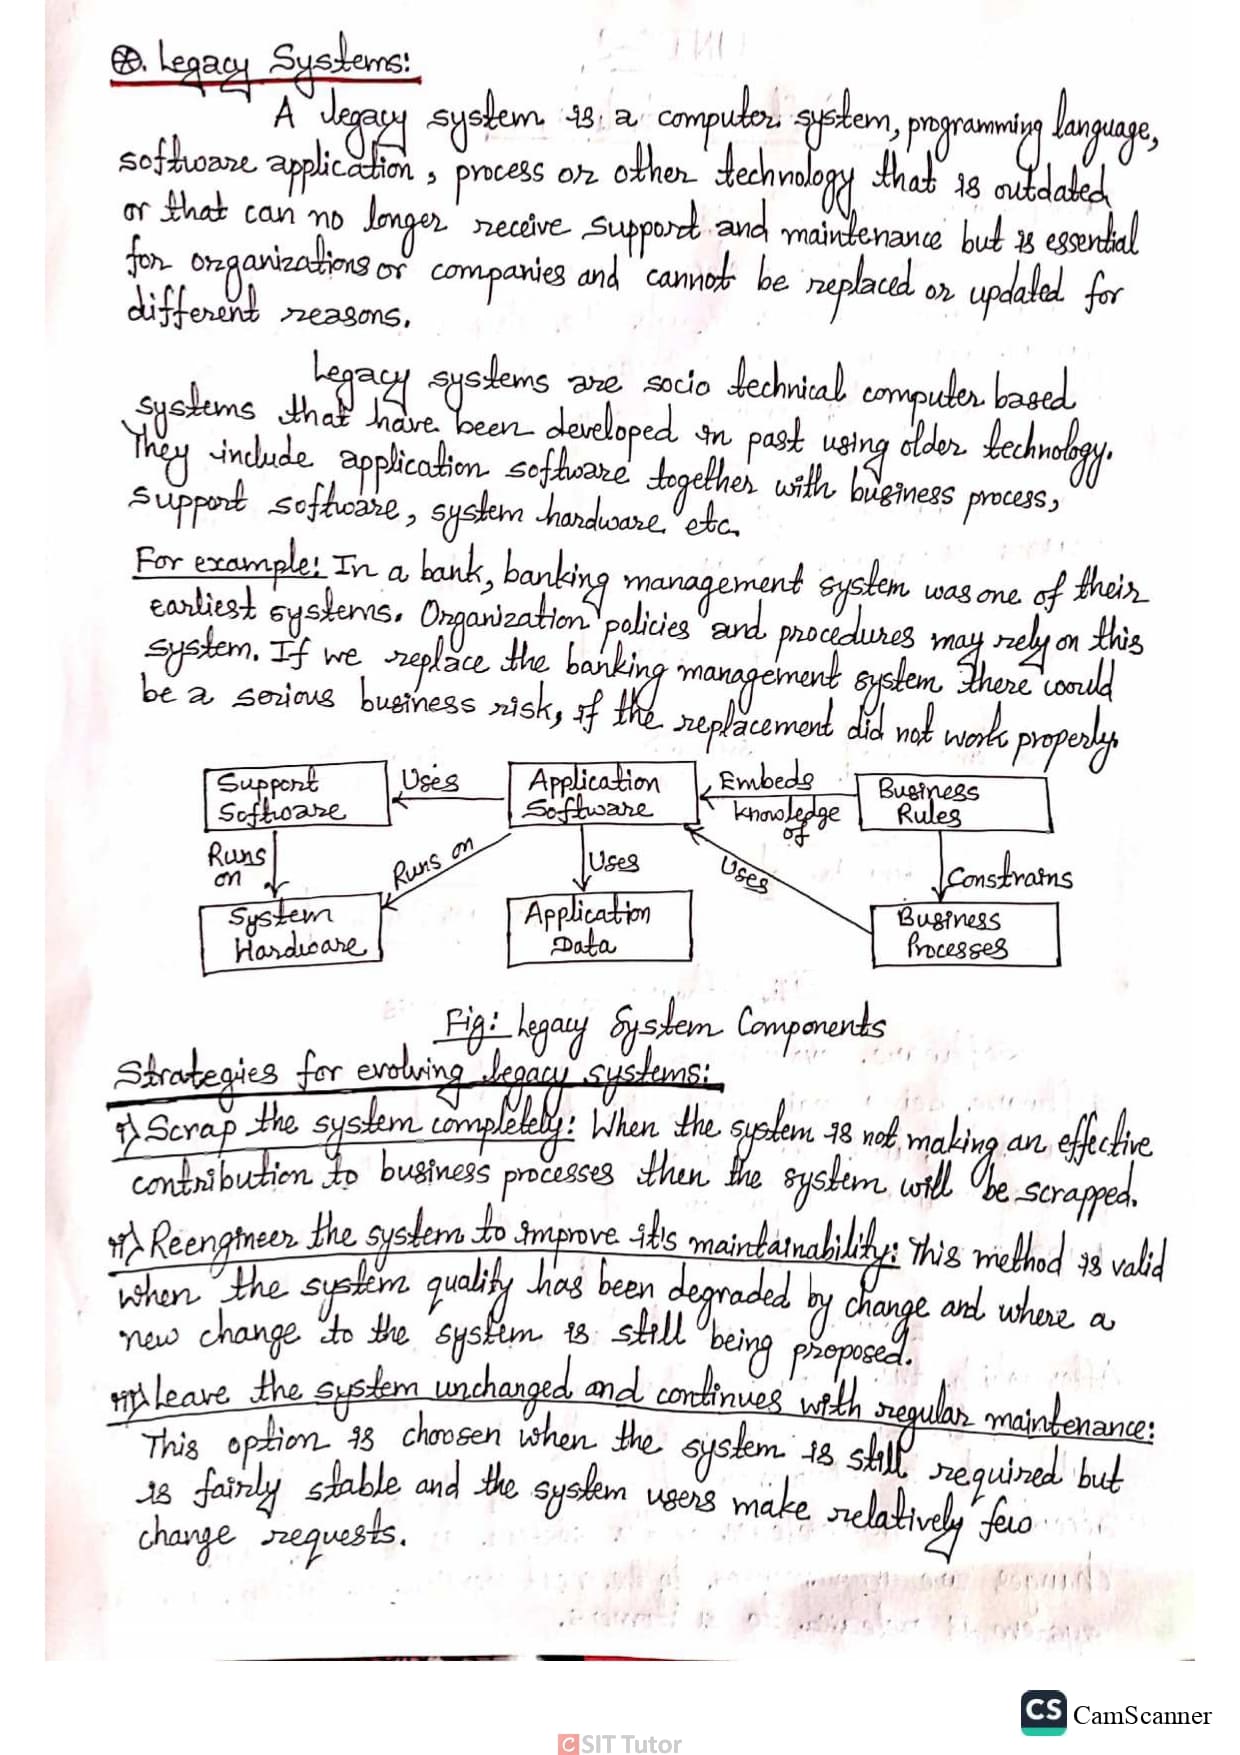 ⊛. Legacy Systems:
A legacy system is a computer system, programming language,
software application, process or other technology that is outdated
or that can no longer receive support and maintenance but is essential
for organizations or companies and cannot be replaced or updated for
different reasons.
Legacy systems are socio technical computer based
systems that have been developed in past using older technology.
They include application software together with business process,
support software, system hardware etc.
For example: In a bank, banking management system was one of their
earliest systems. Organization policies and procedures may rely on this
system. If we replace the banking management system there would
be a serious business risk, if the replacement did not work properly.
Support Software
Uses
Application Software
Embeds knowledge of
Business Rules
Runs on
Runs on
Uses
Uses
Constrains
System Hardware
Application Data
Business Processes
Fig: Legacy System Components
Strategies for evolving legacy systems:
i) Scrap the system completely: When the system is not making an effective
contribution to business processes then the system will be scrapped.
ii) Reengineer the system to improve it's maintainability: This method is valid
when the system quality has been degraded by change and where a
new change to the system is still being proposed.
iii) Leave the system unchanged and continues with regular maintenance:
This option is choosen when the system is still required but
is fairly stable and the system users make relatively few
change requests.
CS CamScanner
CSIT Tutor